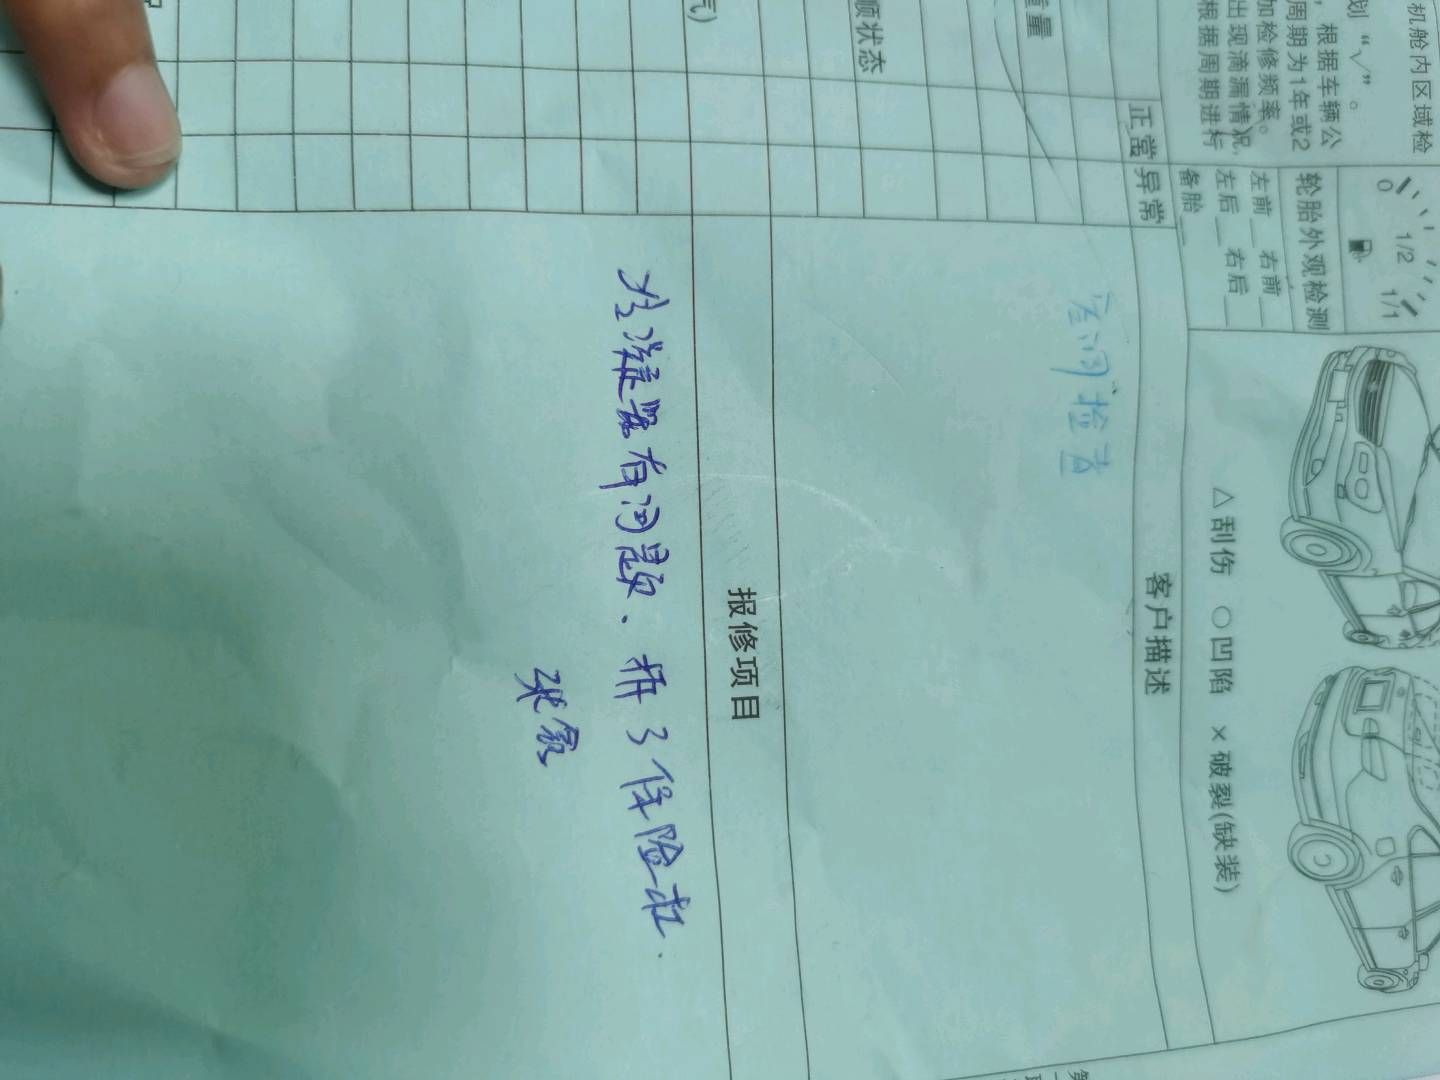 机舱内区域检
划“√”。
，根据车辆公
周期为1年或2
加检修频率。
出现滴漏情况,
根据周期进行
0 1/2 1/1
轮胎外观检测
左前__ 右前__
左后__ 右后__
备胎__
△刮伤 ○凹陷 ×破裂(缺装)
正常 异常
客户描述
检查
重量
顺状态
气)
报修项目
冷凝器有问题、拆了保险杠.